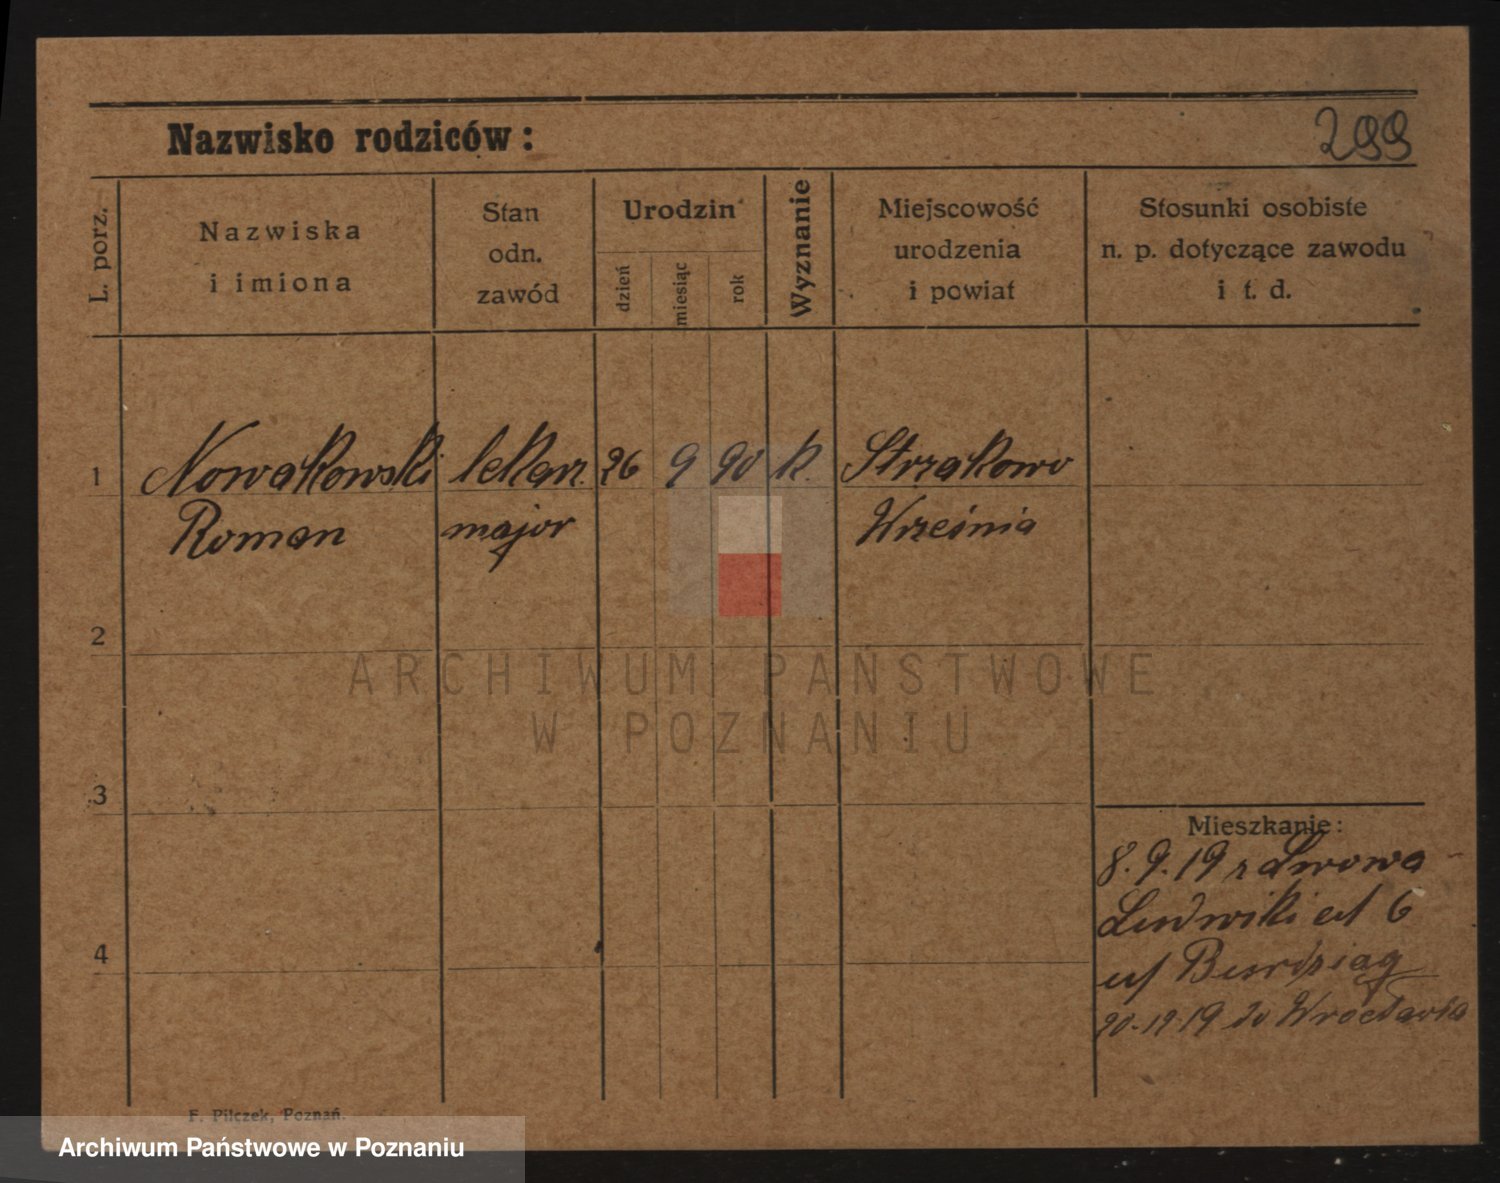 Nazwisko rodziców:
299
L. porz.
Nazwiska
i imiona
Stan
odn.
zawód
Urodzin
dzień
miesiąc
rok
Wyznanie
Miejscowość
urodzenia
i powiat
Stosunki osobiste
n. p. dotyczące zawodu
i t. d.
1 Nowakowski lekarz. 26 9 90 k. Strzałkowo
Roman major Września
2
ARCHIWUM PAŃSTWOWE
W POZNANIU
3
Mieszkanie:
8. 9. 19 z Lwowa
Ludwiki 6
4
20-12 19 do Wrocławia
F. Pilczek, Poznań.
Archiwum Państwowe w Poznaniu